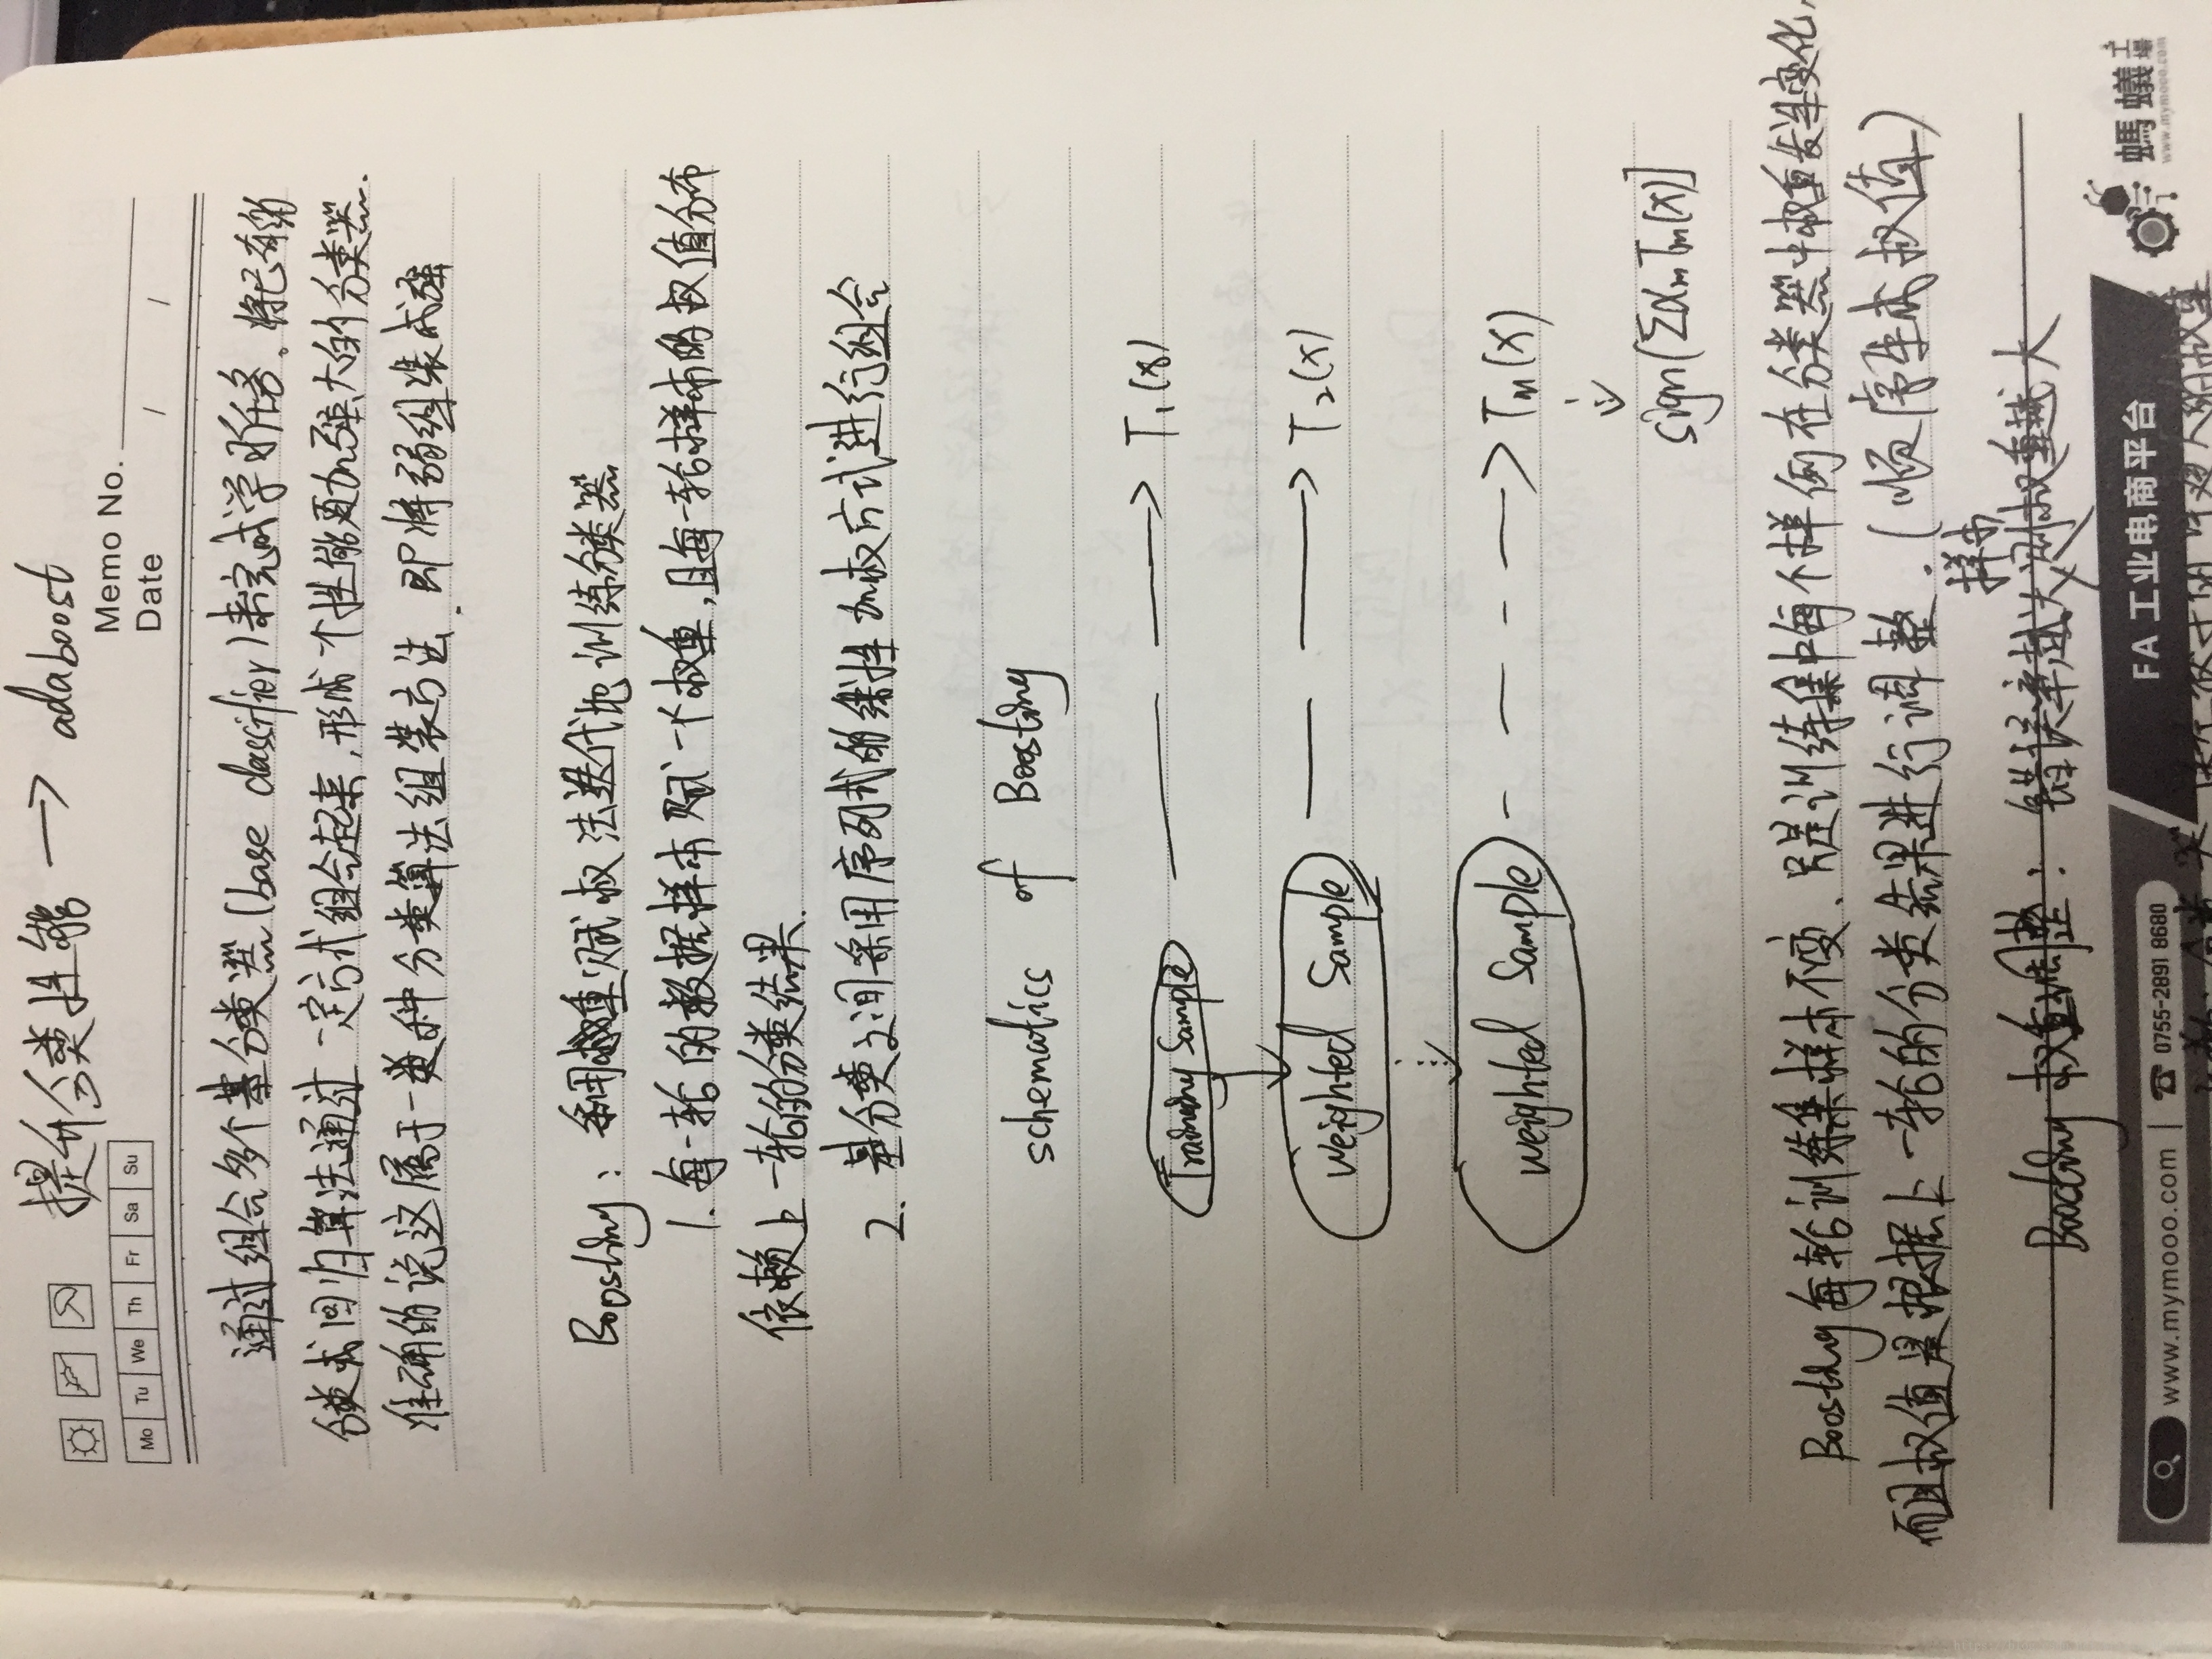 提升分类性能 → adaboost
Memo No.
Mo Tu We Th Fr Sa Su
Date / /
通过组合多个基分类器(base classifier)来完成学习任务。将已有的
分类或回归算法通过一定方式组合起来,形成个性能更加强大的分类器.
准确的说这属于一种分类算法组装方法. 即将弱组装成强
Boosting: 利用重赋权法迭代地训练分类器
1. 每一轮的数据样本赋一个权重,且每一轮样本的权值分布
依赖上一轮的分类结果.
2. 基分类之间采用序列式的线性加权方式进行组合
schematics of Boosting
Training Sample → T₁(x)
Weighted Sample → T₂(x)
weighted Sample → Tm(x)
sign[Σαm Tm(x)]
Boosting每轮训练集样本不变、只是训练集中每个样例在分类器中权重发生变化,
而权值是根据上一轮的分类结果进行调整.(顺序生成权值)
样本
Boosting 权重调整: 错误率越大则权重越大
www.mymooo.com | ☎ 0755-2891 8680 FA 工业电商平台 螞蟻工場
www.mymooo.com